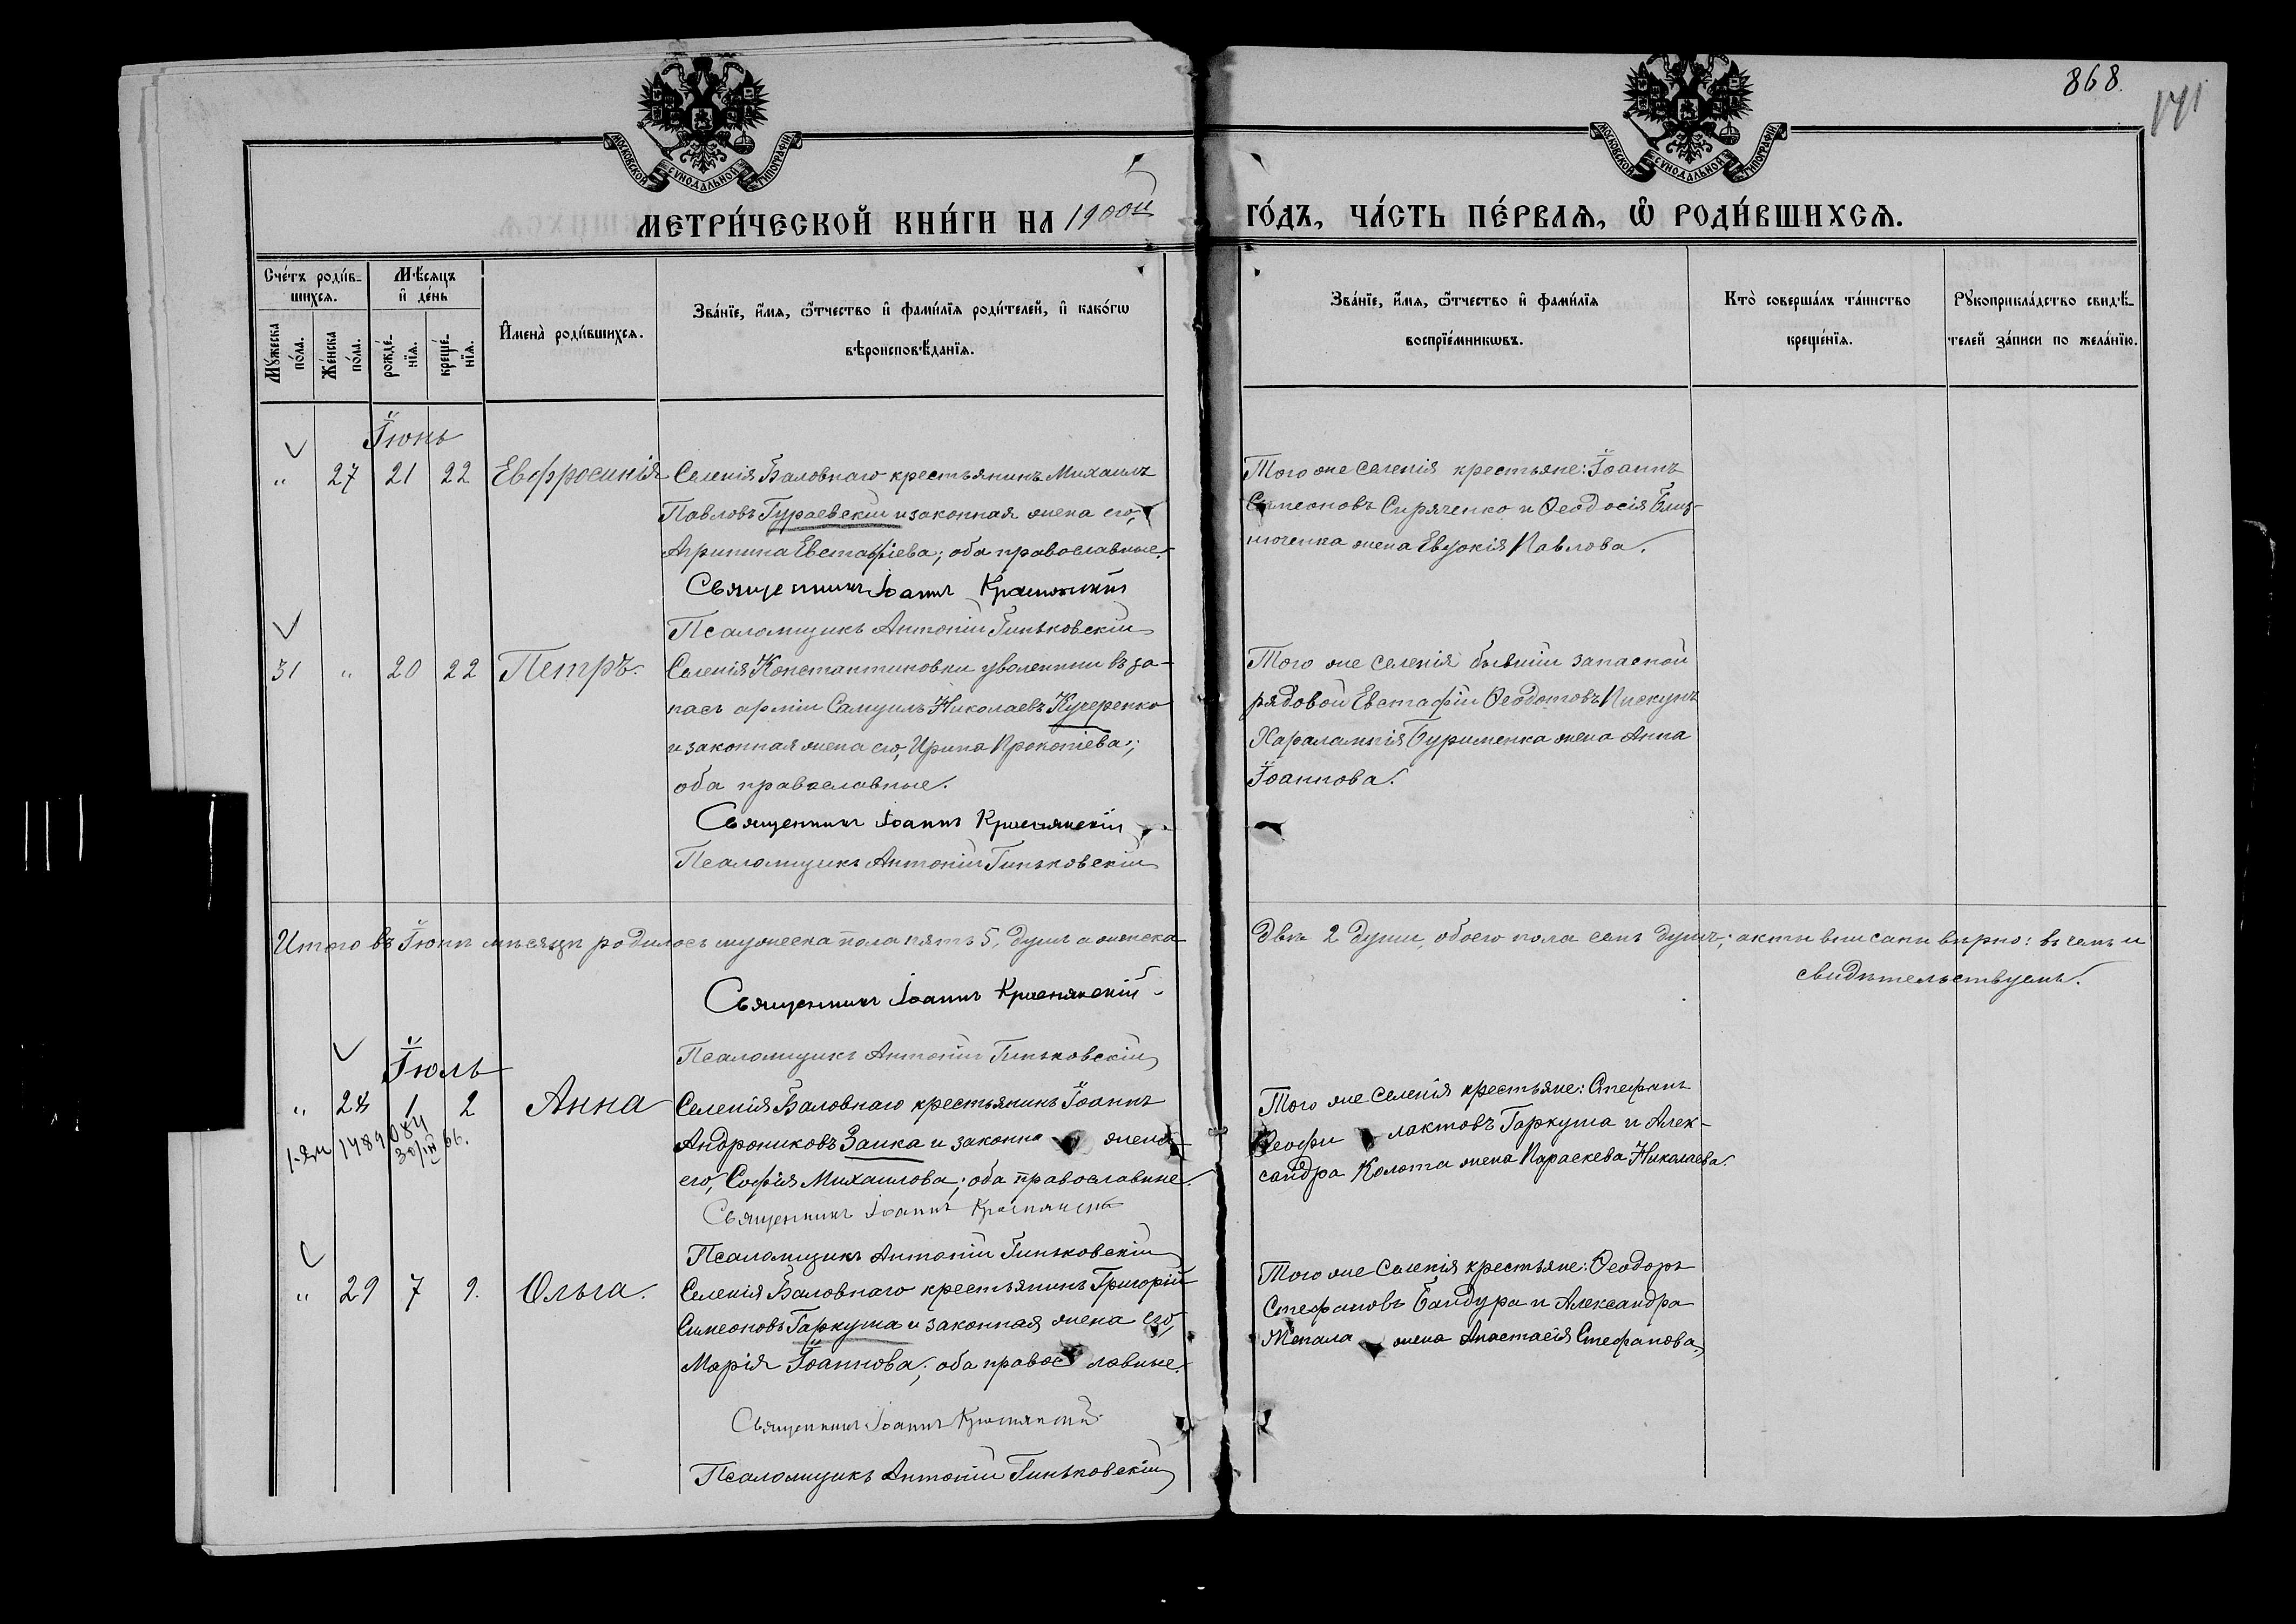 868.
171
МОСКОВСКОЙ СѴНОДАЛЬНОЙ ТИПОГРАФІИ
МОСКОВСКОЙ СѴНОДАЛЬНОЙ ТИПОГРАФІИ
МЕТРИ́ЧЕСКОЙ КНИ́ГИ НА 1900й ГО́ДЪ, ЧА́СТЬ ПЕ́РВАѦ, Ѡ҆ РОДИ́ВШИХСѦ.
Сче́тъ роди́в-
шихсѧ.
Мꙋ́жеска
по́ла.
Же́нска
по́ла.
Мѣ́сѧцъ
и҆ де́нь
рожде́-
нїѧ.
креще́-
нїѧ.
И҆мена̀ роди́вшихсѧ.
Зва́нїе, и҆́мѧ, ѻ҆́тчество и҆ фами́лїѧ роди́телей, и҆ како́гѡ
вѣроисповѣ́данїѧ.
Зва́нїе, и҆́мѧ, ѻ҆́тчество и҆ фами́лїѧ
воспрїе́мникѡвъ.
Кто̀ соверша́лъ та́инство
креще́нїѧ.
Рꙋкоприкла́дство свидѣ́-
телей за́писи по жела́нїю.
Іюнь
" 27 21 22 Евфросинія Селенія Баловнаго крестьянинъ Михаилъ
Павловъ Гураевскій и законная жена его,
Агрипина Евстафіева; оба православные.
Священникъ Іоаннъ Краснянскій
Псаломщикъ Антоній Гиньковскій
Того же селенія крестьяне: Іоаннъ
Симеоновъ Сиряченко и Ѳеодосія Близ-
нюченка жена Евдокія Павлова.
31 " 20 22 Петръ. Селенія Константиновки уволенный въ за-
пасъ арміи Самуилъ Николаевъ Кучеренко
и законная жена его, Ирина Прокопіева;
оба православные.
Священникъ Іоаннъ Краснянскій
Псаломщикъ Антоній Гиньковскій
Того же селенія бывшій запасной
рядовой Евстафій Ѳеодотовъ Пискунъ
Харалампія Бурименка жена Анна
Іоаннова.
Итого въ Іюнѣ мѣсяцѣ родилось мужеска пола пять 5, душъ а женска двѣ 2 души, обоего пола семь душъ; акты вписаны вѣрно: въ чемъ и
свидѣтельствуемъ.
Священникъ Іоаннъ Краснянскій
Псаломщикъ Антоній Гиньковскій
Іюль
" 28 1 2 Анна Селенія Баловнаго крестьянинъ Іоаннъ
Андрониковъ Заика и законна жена
его, Софія Михаилова; оба православные.
Священникъ Іоаннъ Краснянскій
Псаломщикъ Антоній Гиньковскій
Того же селенія крестьяне: Стефанъ
Ѳеофилактовъ Гаркуша и Алек-
сандра Колота жена Параскева Николаева.
" 29 7 9. Ольга. Селенія Баловнаго крестьянинъ Григорій
Симеоновъ Гаркуша и законная жена его,
Марія Іоаннова; оба православные.
Священникъ Іоаннъ Краснянскій
Псаломщикъ Антоній Гиньковскій
Того же селенія крестьяне: Ѳеодоръ
Стефановъ Бандура и Александра
жена Анастасія Стефанова.